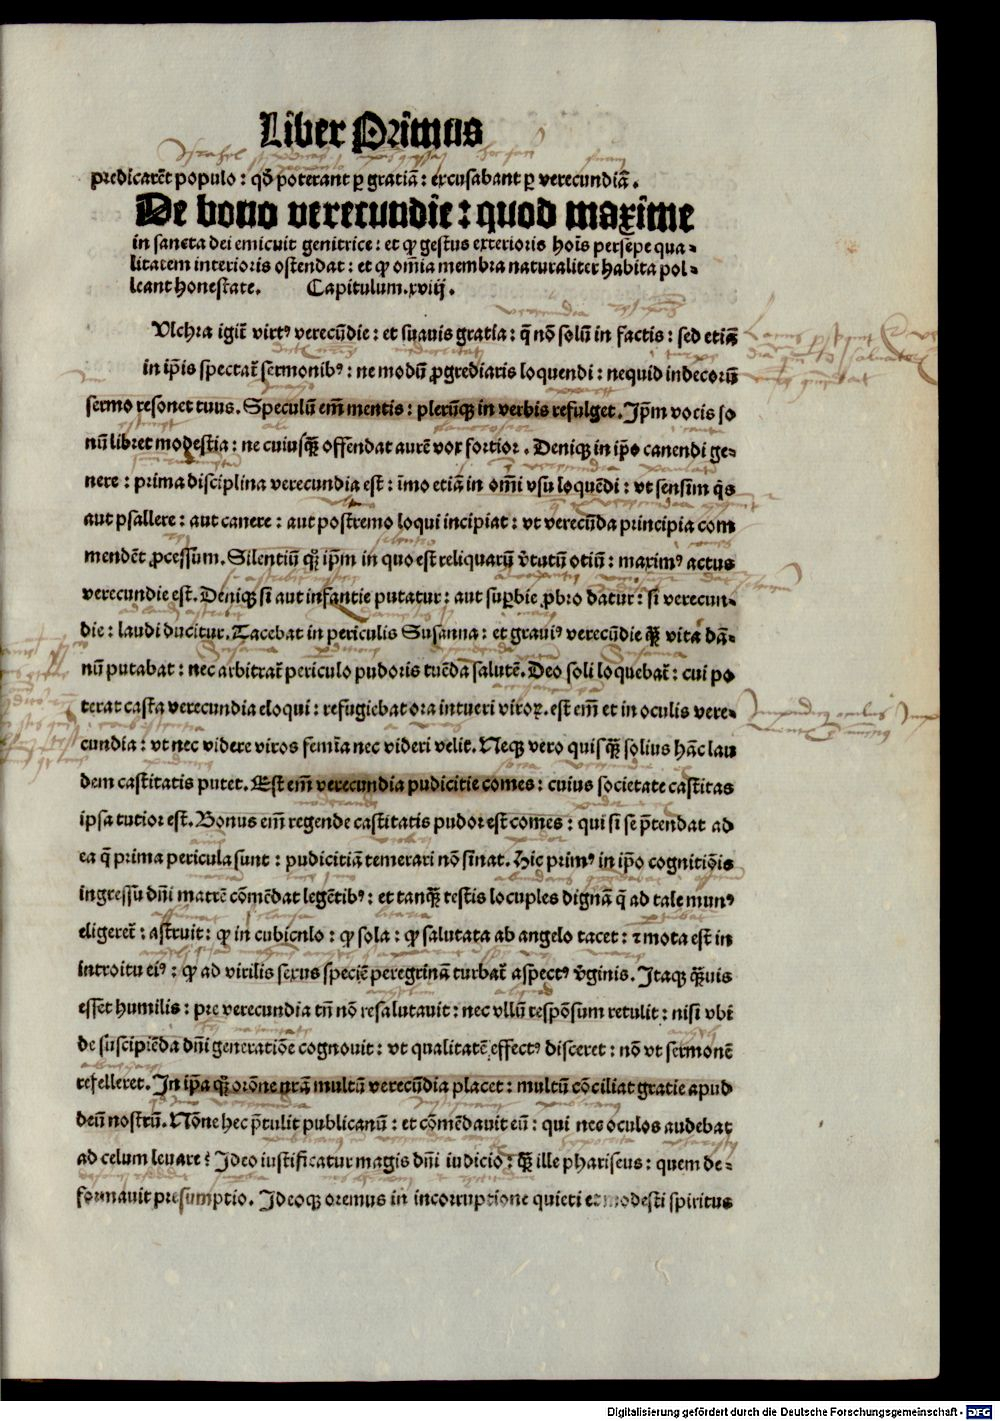 Liber Primus
predicarēt populo : qđ poterant ꝑ gratiā : excusabant ꝑ verecundiā .
De bono verecundie : quod maxime
in sancta dei emicuit genitrice : et ꝙ gestus exterioris hoīs persepe qua-
litatem interioris ostendat : et ꝙ om̄ia membra naturaliter habita pol-
leant honestate. Capitulum.xviij.
Vlchra igit̄ virtꝰ verecūdie : et suauis gratia : q̄ nō solū in factis : sed etiā
in ip̄is spectat̄ sermonibꝰ : ne modū ꝓgrediaris loquendi : nequid indecorū
sermo resonet tuus. Speculū em̄ mentis : plerūqꝫ in verbis refulget. Ip̄m vocis so
nū libret modestia : ne cuiusqꝫ̄ offendat aurē vox fortior . Deniqꝫ in ip̄o canendi ge-
nere : prima disciplina verecundia est : īmo etiā in om̄i vsu loquēdi : vt sensim q̄s
aut psallere : aut canere : aut postremo loqui incipiat : vt verecūda principia com
mendēt ꝓcessum. Silentiū qꝫ ip̄m in quo est reliquarū v̄tutū otiū : maximꝰ actus
verecundie est. Deniqꝫ si aut infantie putatur : aut suꝑbie ꝓbro datur : si verecun-
die : laudi ducitur. Tacebat in periculis Susanna : et grauiꝰ verecūdie qꝫ̄ vita dā-
nū putabat : nec arbitrat̄ periculo pudoris tuēda salutē. Deo soli loquebat̄ : cui po
terat casta verecundia eloqui : refugiebat ora intueri viroꝝ. est em̄ et in oculis vere-
cundia : vt nec videre viros femīa nec videri velit. Neqꝫ vero quisqꝫ̄ solius hāc lau
dem castitatis putet. Est em̄ verecundia pudicitie comes : cuius societate castitas
ipsa tutior est. Bonus em̄ regende castitatis pudor est comes : qui si se p̄tendat ad
ea q̄ prima pericula sunt : pudicitiā temerari nō sīnat. Hic primꝰ in ip̄o cognitiōis
ingressū dn̄i matrē cōmēdat legētibꝰ : et tanqꝫ̄ testis locuples dignā q̄ ad tale munꝰ
eligeret̄ : astruit : ꝙ in cubiculo : ꝙ sola : ꝙ salutata ab angelo tacet : ⁊ mota est in
introitu eiꝰ : ꝙ ad virilis sexus speciē peregrinā turbat̄ aspectꝰ v̄ginis. Itaqꝫ qꝫ̄uis
esset humilis : pre verecundia tn̄ nō resalutauit : nec vllū respōsum retulit : nisi vbi
de suscipiēda dn̄i generatiōe cognouit : vt qualitatē effectꝰ disceret : nō vt sermonē
refelleret. In ip̄a qꝫ orōne nr̄am multū verecūdia placet : multū cōciliat gratie apud
deū nostrū. Nōne hec p̄tulit publicanū : et cōmēdauit eū : qui nec oculos audebat
ad celum leuare ? Ideo iustificatur magis dn̄i iudicio : qꝫ̄ ille phariseus : quem de-
formauit presumptio. Ideoqꝫ oremus in incorruptione quieti et modesti spiritus
Digitalisierung gefördert durch die Deutsche Forschungsgemeinschaft - DFG